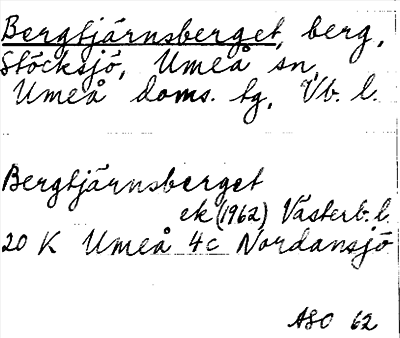 Bergtjärnsberget, berg,
Stöcksjö, Umeå sn,
Umeå doms. tg, Vb. l.
Bergtjärnsberget
ek (1962) Västerb. l.
20 K Umeå 4c Nordansjö
ASO 62